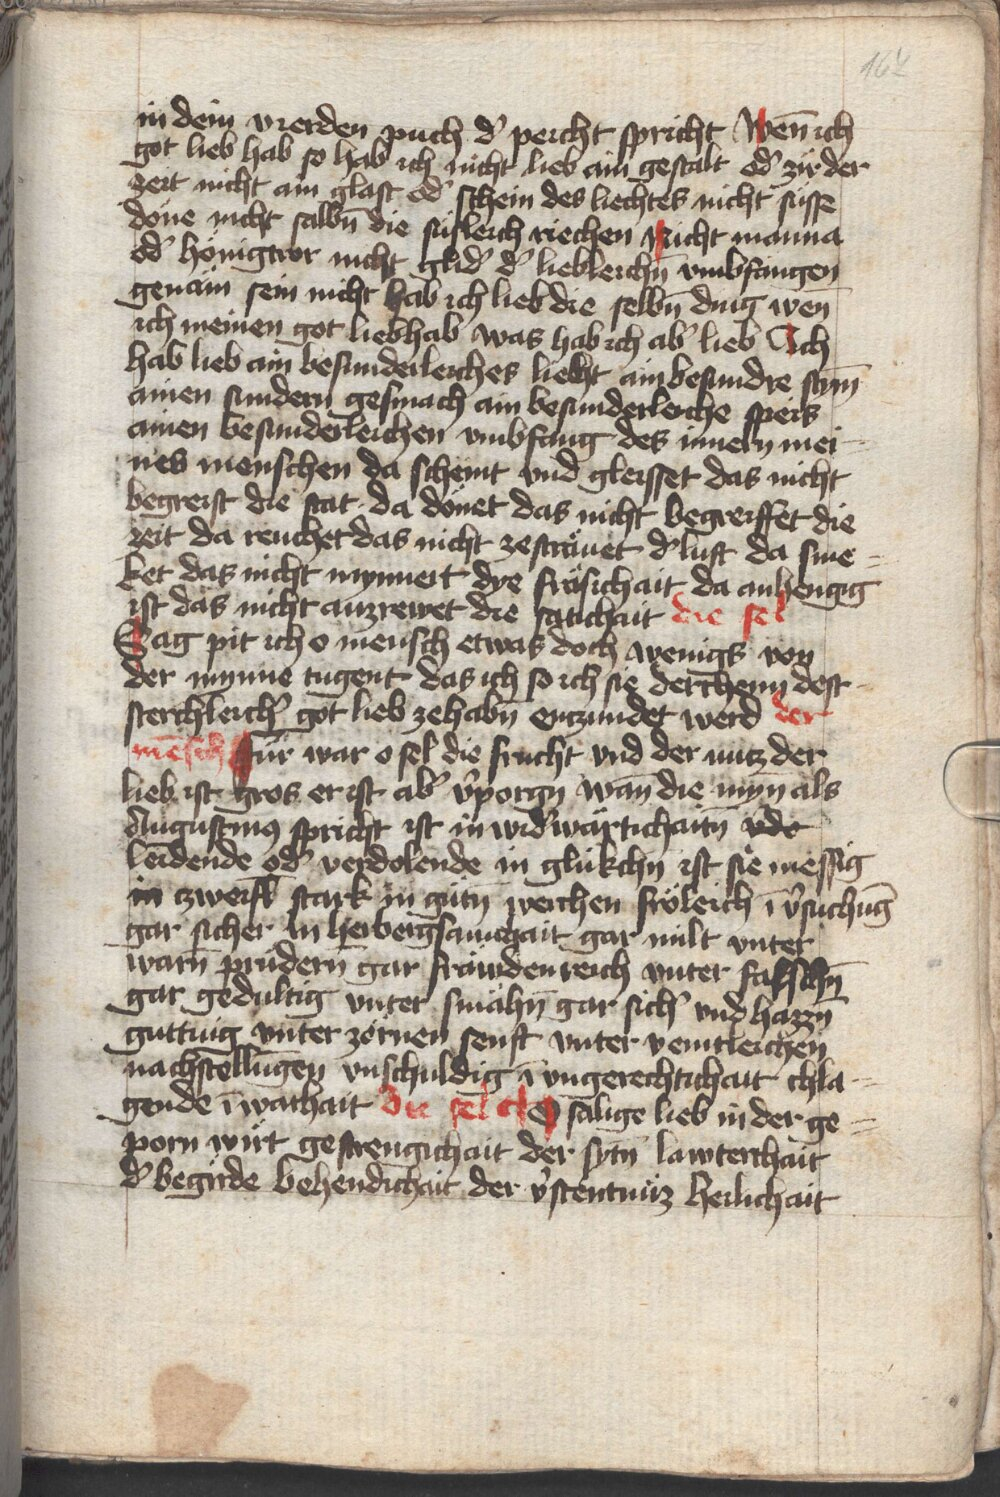 164
in dem vierden puch d' peicht spricht Wen̄ ich
got lieb hab so hab ich nicht lieb ain gestalt od' zir der
zeit nicht ain glast od' schein des liechtes nicht süsse
döne nicht salbn̄ die süsleich riechen Nicht manna
od' hönigtror nicht glid' d' liebleichn̄ vmbfangen
genäm sein nicht hab ich lieb die selbn̄ ding wen̄
ich meinen got liebhab was hab ich ab' lieb Ich
hab lieb ain besunderleiches liecht ain besundre stym̄
ainen sundern gesmach ain besunderleiche speis
ainen besunderleichen vmbfang des innern mei-
nes menschen da scheint vnd gleisset das nicht
begreift die stat da dönet das nicht begreiffet die
zeit da reuchet das nicht zesträuet d' luft da sme-
ket das nicht mynnert dye fräsichait da anhengig
ist das nicht auzrewet die satichait die sel
Sag pit ich o mensch etwas doch wenigs von
der mynne tugent das ich so ich sie derchenn dest
sterchleich' got lieb zehabn̄ enczundet werd der
me̅sch Für war o sel die frucht vnd der nutz der
lieb ist gros er ist ab' v'porgn̄ wan̄ die myn̄ als
Augustinus spricht ist in wid'wärtichaitn̄ vde
leidende od' verdolende in glükchn̄ ist sie messig
in zweifl stark in gutn̄ werchen fröleich ī v'suchūg
gar sicher in herbergsamchait gar milt vnter
warn̄ prüdern gar fräudenreich vnter falschn̄
gar gedultig vnter smähn̄ gar sich' vnd hazzn̄
guttuig vnter zörnen senft vnter veintleichen
nachstellungen vnschuldig ī vngerechtichait chla-
gende ī warhait Die sel O sälige lieb in der ge-
porn wirt gestrengichait der syttn̄ lawterchait
d' begirde behendichait der v'stentnüz heilichait